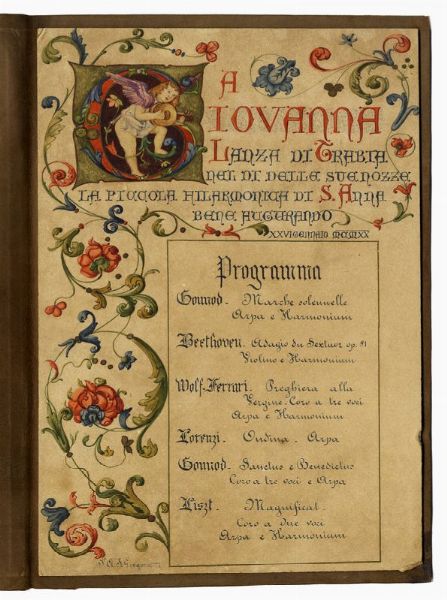 A
GIOVANNA
LANZA DI TRABIA
NEL DI DELLE SUE NOZZE
LA PICCOLA FILARMONICA DI S. ANNA
BENE AUGURANDO
XXVI GENNAIO MCMXX
Programma
Gounod - Marche solennelle
Arpa e Harmonium
Beethoven. Adagio du Sextuor op. 81
Violino e Harmonium
Wolf-Ferrari. Preghiera alla
Vergine - Coro a tre voci
Arpa e Harmonium
Lorenzi - Ondina - Arpa
Gounod - Sanctus e Benedictus
Coro a tre voci e Arpa
Liszt. Magnificat
Coro a due voci
Arpa e Harmonium